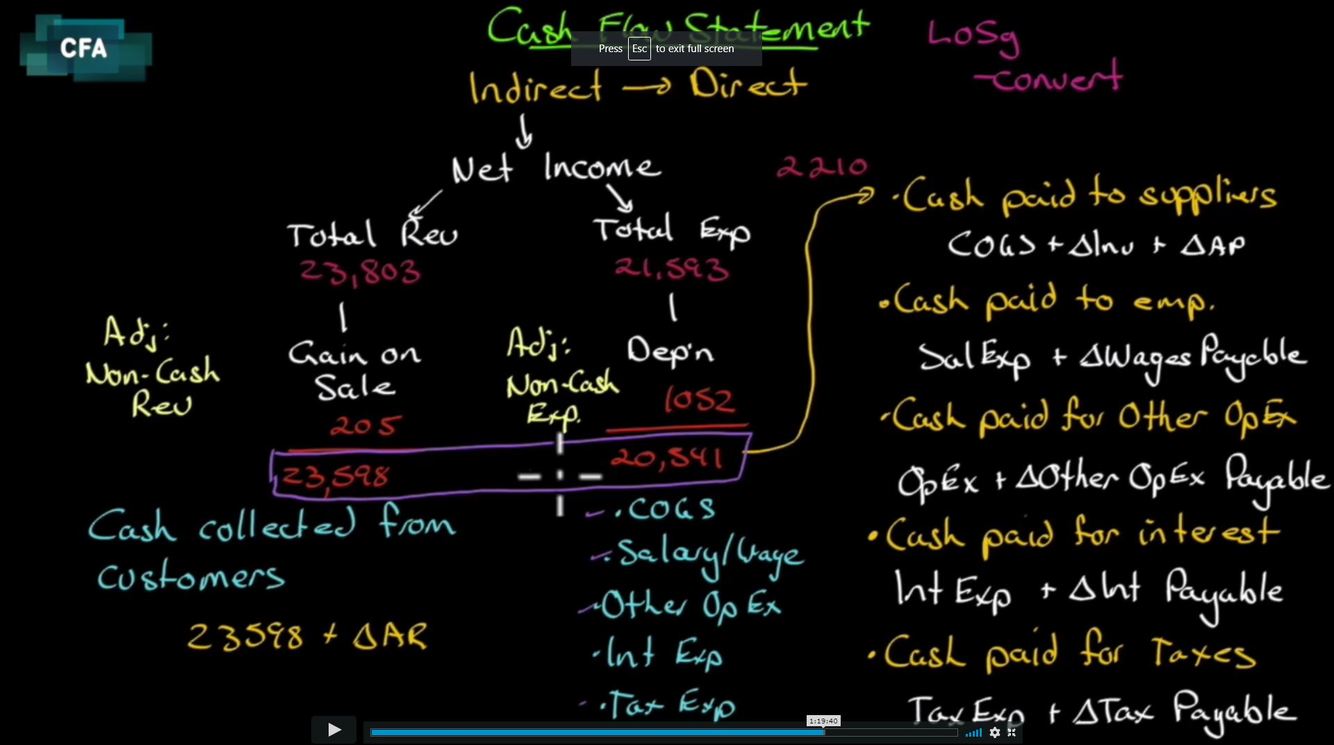 CFA
Cash Flow Statement
Press Esc to exit full screen
LOSg
-Convert
Indirect → Direct
Net Income
2210
Total Rev
23,803
Total Exp
21,593
Adj:
Non-Cash
Rev
Gain on
Sale
205
23,598
Adj:
Non-Cash
Exp.
Dep'n
1052
20,541
Cash collected from
customers
23598 + ΔAR
· COGS
· Salary/Wage
· Other Op Ex
· Int Exp
· Tax Exp
· Cash paid to suppliers
COGS + ΔInv + ΔAP
· Cash paid to emp.
Sal Exp + ΔWages Payable
· Cash paid for Other OpEx
OpEx + ΔOther OpEx Payable
· Cash paid for interest
Int Exp + ΔInt Payable
· Cash paid for Taxes
Tax Exp + ΔTax Payable
1:19:40